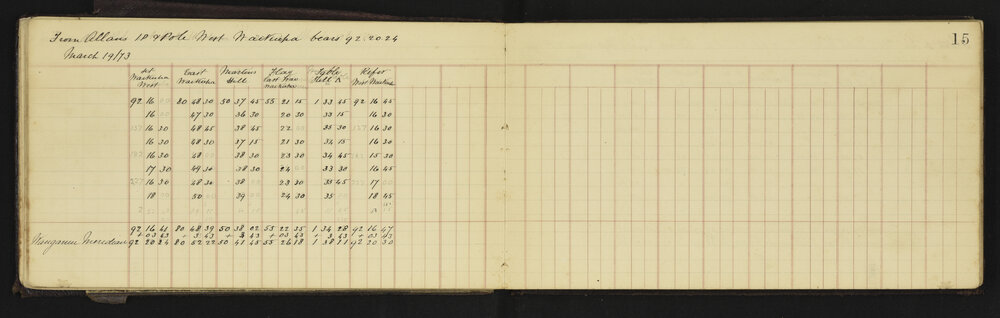 From Allans 18 & Pole West Waikuha bears 92.20.24
15
March 19/73
Set Waikuha West East Waikuha Martins Hill Flag East Trav Waikuha Table Hill Δ Refer West Waikuha
92 16 00 80 48 30 50 37 45 55 21 15 1 33 45 92 16 45
16 00 47 30 36 30 20 30 33 15 16 30
16 30 48 45 38 45 22 00 35 30 16 30
16 30 48 30 37 15 21 30 34 15 16 30
16 30 48 00 38 30 23 30 34 45 15 30
17 30 49 30 38 30 24 00 33 30 16 45
16 30 48 30 38 00 23 30 35 45 17 00
18 00 50 00 39 00 24 30 35 00 18 45
92 16 41 80 48 39 50 38 02 55 22 35 1 34 28 92 16 47
+ 03 43 + 3 43 + 3 43 + 03 43 + 3 43 + 03 43
Wanganui Meridian 92 20 24 80 52 22 50 41 45 55 26 18 1 38 11 92 20 30